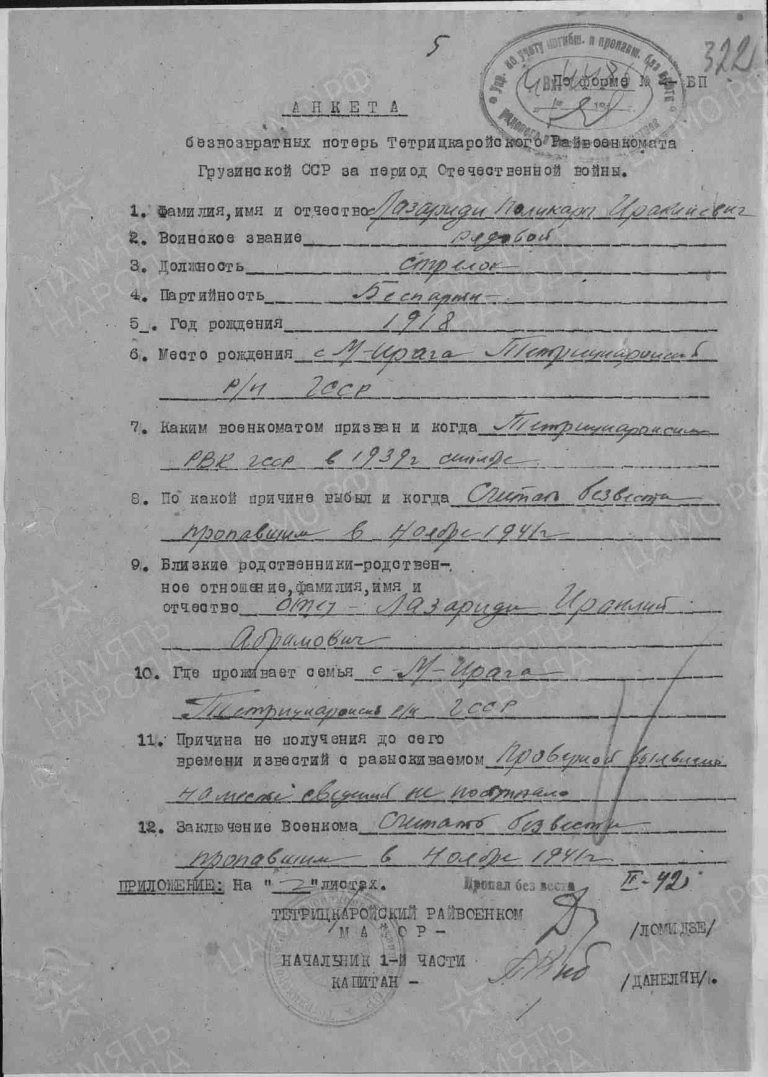 5
322
По форме № 2-БП
АНКЕТА
безвозвратных потерь Тетрицкаройского Райвоенкомата
Грузинской ССР за период Отечественной войны.
1. Фамилия, имя и отчество Лазариди Поликарп Ираклиевич
2. Воинское звание рядовой
3. Должность стрелок
4. Партийность Беспарти-
5. Год рождения 1918
6. Место рождения с М-Ирага Тетрицкаройский
р/н ГССР
7. Каким военкоматом призван и когда Тетрицкаройским
РВК ГССР в 1939г
8. По какой причине выбыл и когда Считать безвести
пропавшим в Ноябре 1941г
9. Близкие родственники-родствен-
ное отношение, фамилия, имя и
отчество отец - Лазариди Ираклий
Абрамович
10. Где проживает семья с-М-Ирага
Тетрицкаройский р/н ГССР
11. Причина не получения до сего
времени известий с разыскиваемом Проверкой выявлено
на месте сведений не поступало
12. Заключение Военкома Считать безвести
пропавшим в Ноябре 1941г
ПРИЛОЖЕНИЕ: На "2" листах. Пропал без вести II-42
ТЕТРИЦКАРОЙСКИЙ РАЙВОЕНКОМ
МАЙОР - /ЛОМИДЗЕ/
НАЧАЛЬНИК 1-Й ЧАСТИ
КАПИТАН - /ДАНЕЛЯН/.
ПАМЯТЬ НАРОДА
ЦАМО.РФ